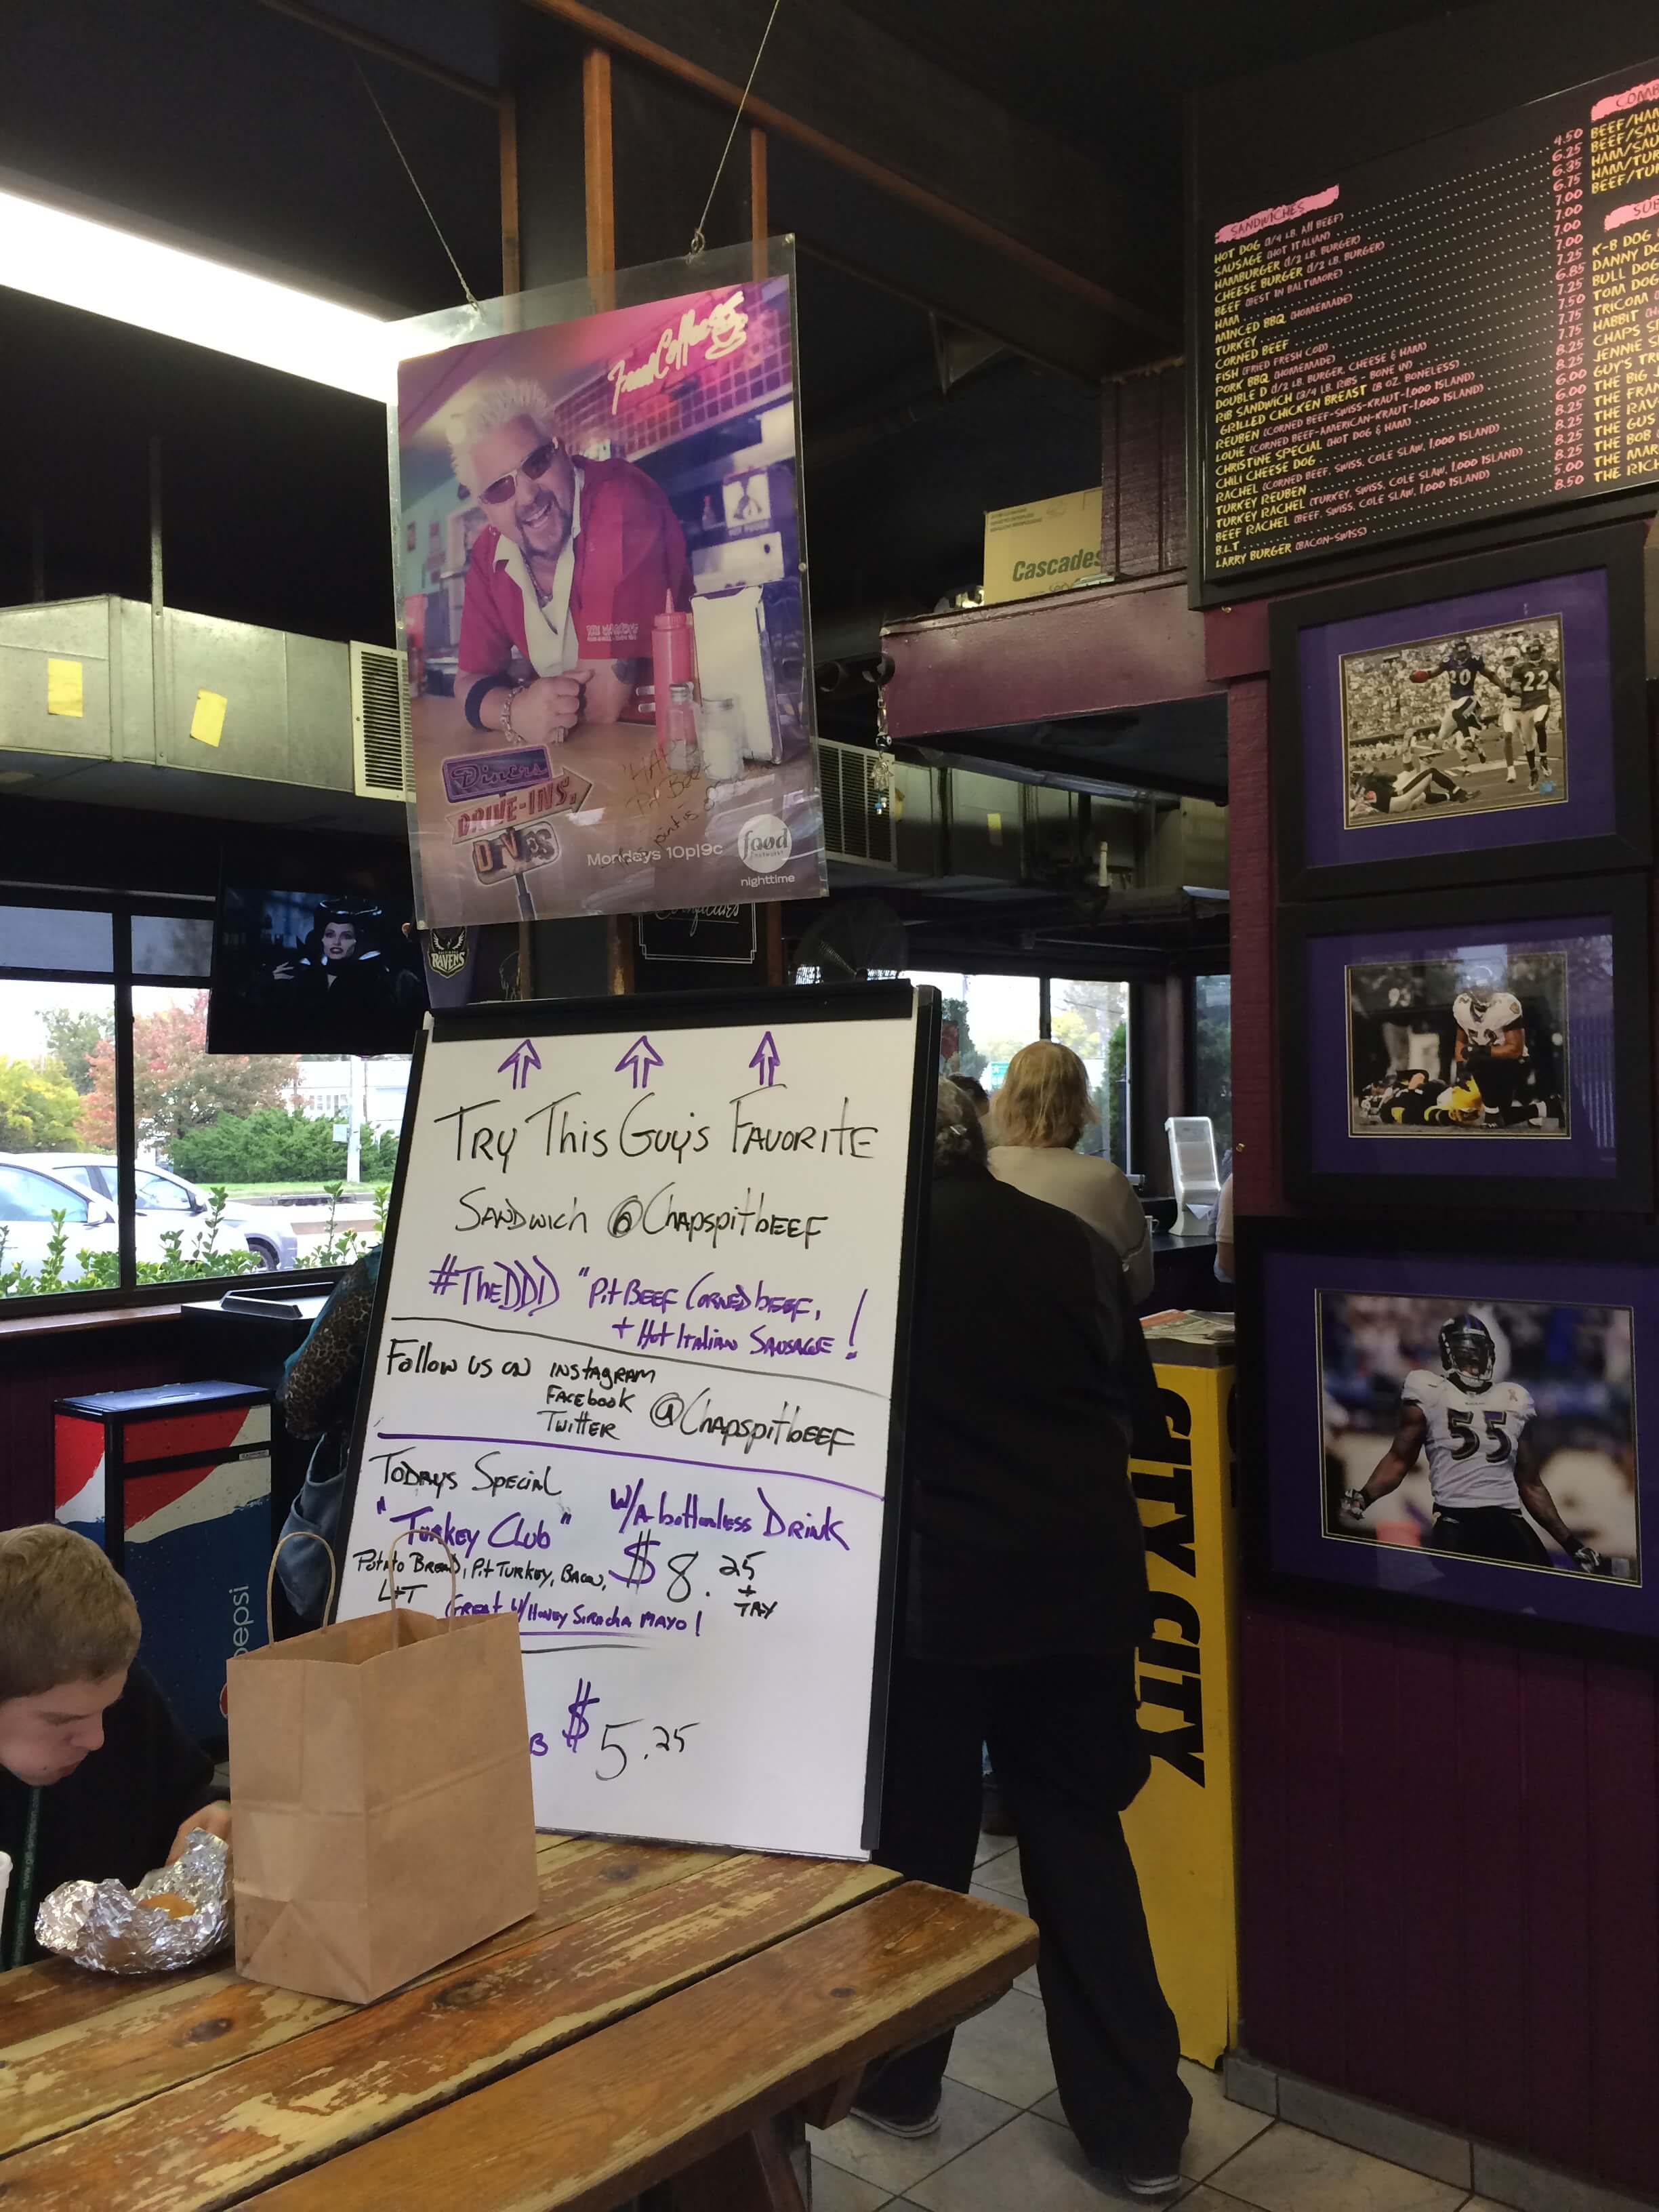 SANDWICHES
HOT DOG (1/4 LB. All BEEF) 4.50
SAUSAGE (HOT ITALIAN) 6.25
HAMBURGER (1/2 LB. BURGER) 6.35
CHEESE BURGER (1/2 LB. BURGER) 6.75
BEEF (BEST IN BALTIMORE) 7.00
HAM 7.00
MINCED BBQ (HOMEMADE) 7.00
TURKEY 7.00
CORNED BEEF 7.25
FISH (FRIED FRESH COD) 6.85
PORK BBQ (HOMEMADE) 7.25
DOUBLE D (1/2 LB. BURGER, CHEESE & HAM) 7.50
RIB SANDWICH (3/4 LB. RIBS - BONE IN) 7.75
GRILLED CHICKEN BREAST (8 OZ. BONELESS) 7.75
REUBEN (CORNED BEEF-SWISS-KRAUT-1,000 ISLAND) 8.25
LOUIE (CORNED BEEF-AMERICAN-KRAUT-1,000 ISLAND) 8.25
CHRISTINE SPECIAL (HOT DOG & HAM) 6.00
CHILI CHEESE DOG 6.00
RACHEL (CORNED BEEF, SWISS, COLE SLAW, 1,000 ISLAND) 8.25
TURKEY REUBEN 8.25
TURKEY RACHEL (TURKEY, SWISS, COLE SLAW, 1,000 ISLAND) 8.25
BEEF RACHEL (BEEF, SWISS, COLE SLAW, 1,000 ISLAND) 8.25
B.L.T 5.00
LARRY BURGER (BACON-SWISS) 8.50
BEEF/HAM
K-B DOG
BULL DOG
TOM DOG
TRICOM
HABBIT
CHAPS
JENNIE
GUY'S
THE BIG
THE
THE
THE GUS
THE BOB
THE
THE
Cascades
Diners
DRIVE-INS,
DIVES
Mondays 10p|9c
food
nighttime
RAVENS
20
22
55
TRY THIS GUY'S FAVORITE
SANDWICH @ChapspitbEEF
#TheDDD "Pit BEEF CORNED bEEF,
+ Hot Italian SAUSAGE!
Follow us on INSTAGRAM
FACEbook
TWITTER
@ChapspitbEEF
TODAYS SPECIAL
"TURKEY CLUB" W/A bottomless DRINK
POTATO BREAD, Pit TURKEY, BACON, $8.25
L+T + TAX
GREAT W/HONEY SIRACHA MAYO!
B $5.25
pepsi
CITY
CITY